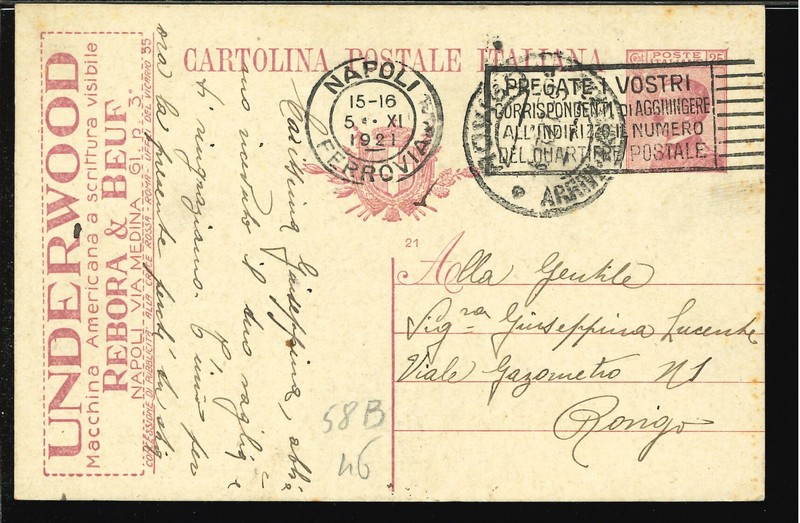 CARTOLINA POSTALE ITALIANA
POSTE
ITALIANE
25
NAPOLI
15-16
5 XI
1921
FERROVIA
PREGATE I VOSTRI
CORRISPONDENTI DI AGGIUNGERE
ALL'INDIRIZZO IL NUMERO
DEL QUARTIERE POSTALE
21
Alla Gentile
Sig.ra Giuseppina Lucente
Viale Gazometro N1
Rovigo
UNDERWOOD
Macchina Americana a scrittura visibile
REBORA & BEUF
NAPOLI VIA MEDINA 61. p. 3°
CONCESSIONE DI PUBBLICITA' ALLA CROCE ROSSA - ROMA - UFFICI DEL VICARIO 35
Carissima Giuseppina, abbia
mo ricevuto il tuo vaglia e
ti ringraziamo.
ora la presente
58B
46